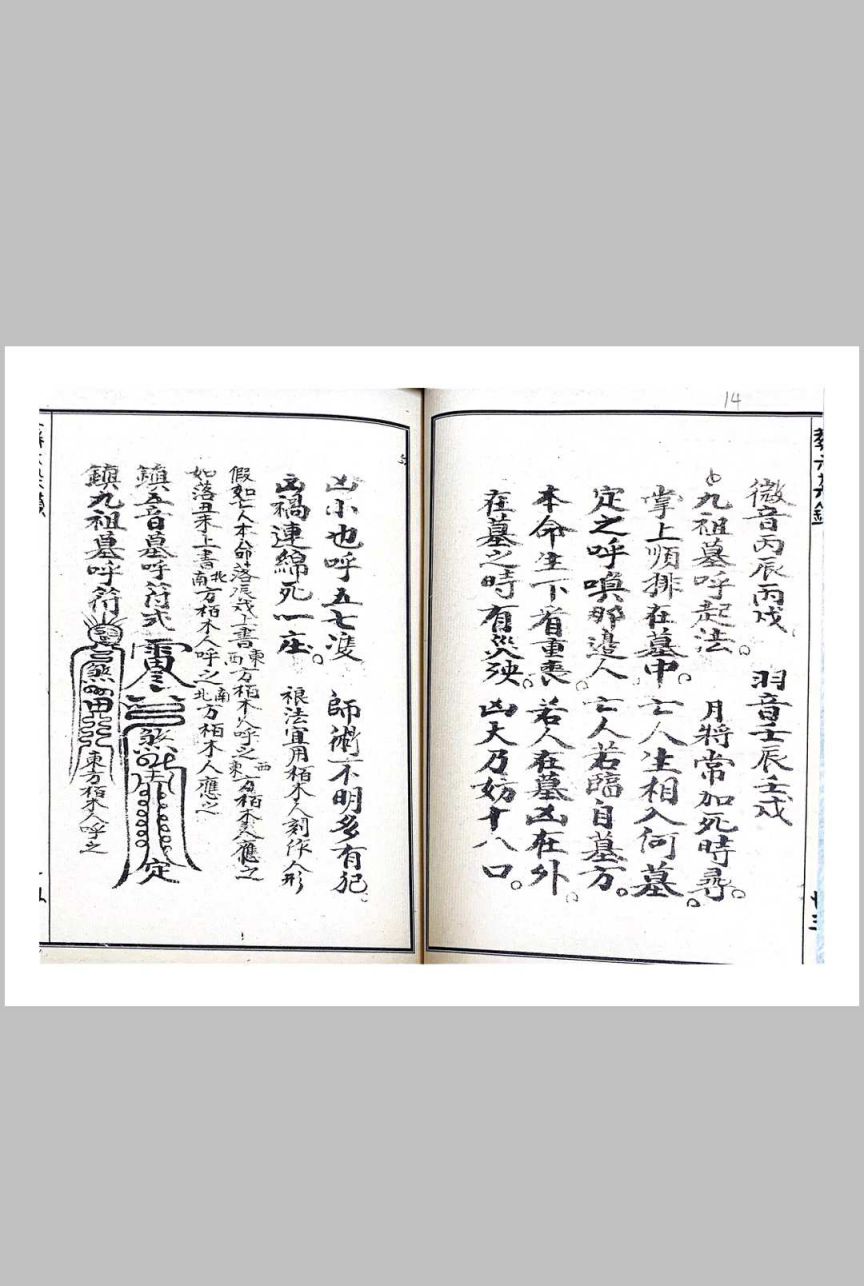 14
徵音丙辰丙戌 羽音壬辰壬戌
九祖墓呼起法。 月將常加死時尋。
掌上順排在墓中。 亡人生相入何墓。
定之呼喚那邊人 亡人若臨自墓方。
本命生下省重喪。 若人在墓凶在外。
在墓之時有災殃。 凶大乃妨十八口。
凶小也呼五七隻 師術不明多有犯。
凶禍連綿死一庄。 禳法宜用栢木人刻作人形
假如亡人本命落辰戌上書東西方栢木人呼之西東方栢木人應之
如落丑未上書北南方栢木人呼之南北方栢木人應之
鎮五音墓呼符式
煞
定
鎮九祖墓呼符
煞
東方栢木人呼之